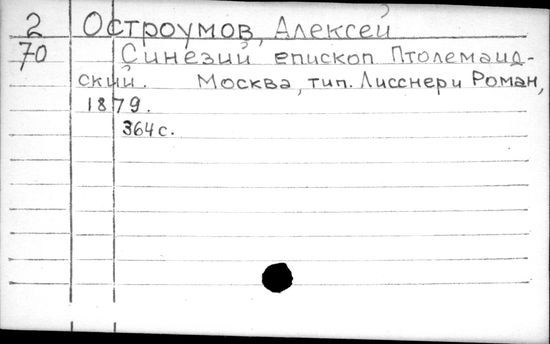 2 Остроумов, Алексей
70 Синезий епископ Птолемаид-
ский. Москва, тип. Лисснер и Роман,
1879.
364 с.